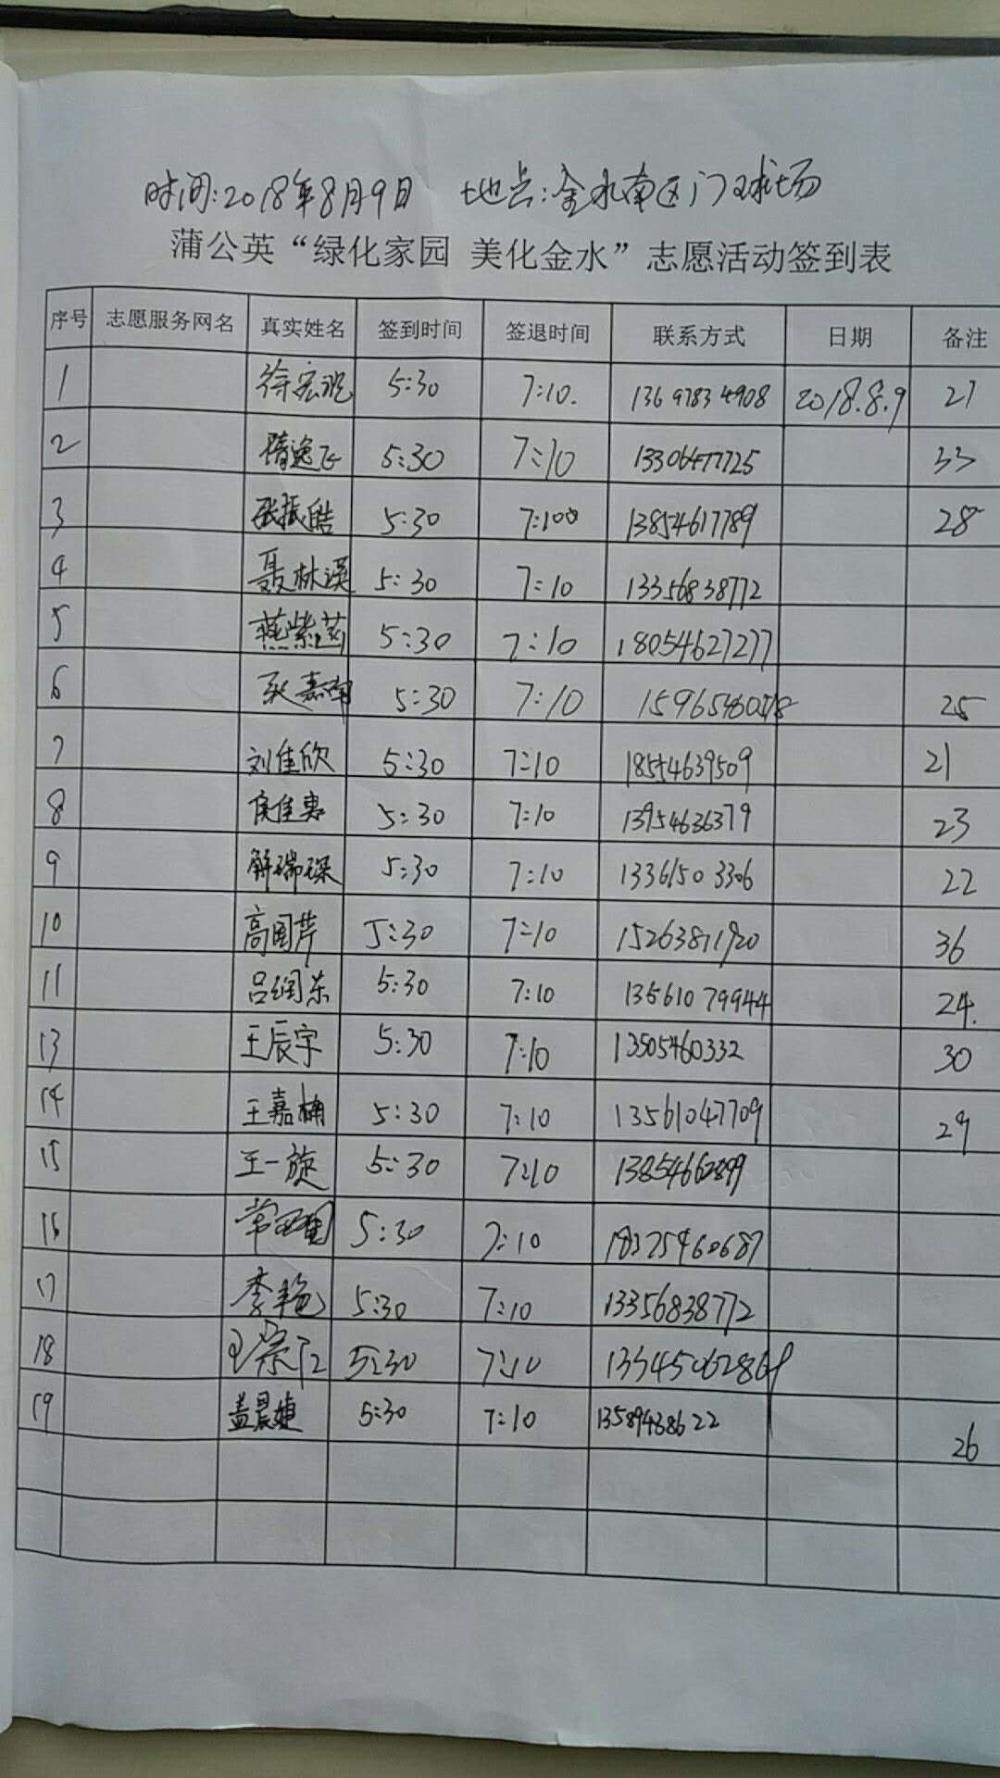 时间:2018年8月9日 地点:金水南区门球场
蒲公英“绿化家园 美化金水”志愿活动签到表
序号 志愿服务网名 真实姓名 签到时间 签退时间 联系方式 日期 备注
1 徐宏 5:30 7:10. 13697834908 2018.8.9 27
2 隋逸飞 5:30 7:10 13306477725 33
3 张振皓 5:30 7:10 13854617789 28
4 聂林溪 5:30 7:10 13356838772
5 燕紫 5:30 7:10 18054627277
6 耿嘉 5:30 7:10 25
7 刘佳欣 5:30 7:10 18554639509 21
8 侯佳惠 5:30 7:10 13954636379 23
9 解瑞琛 5:30 7:10 13361503306 22
10 高国芹 5:30 7:10 15263811920 36
11 吕润东 5:30 7:10 13561079944 24.
13 王辰宇 5:30 7:10 13505460332 30
14 王嘉楠 5:30 7:10 13561047709 29
15 王一旋 5:30 7:10 13854662899
16 常 5:30 7:10 18375460687
17 李艳 5:30 7:10 13356838772
18 5:30 7:10
19 盖晨婕 5:30 7:10 13589438622 26